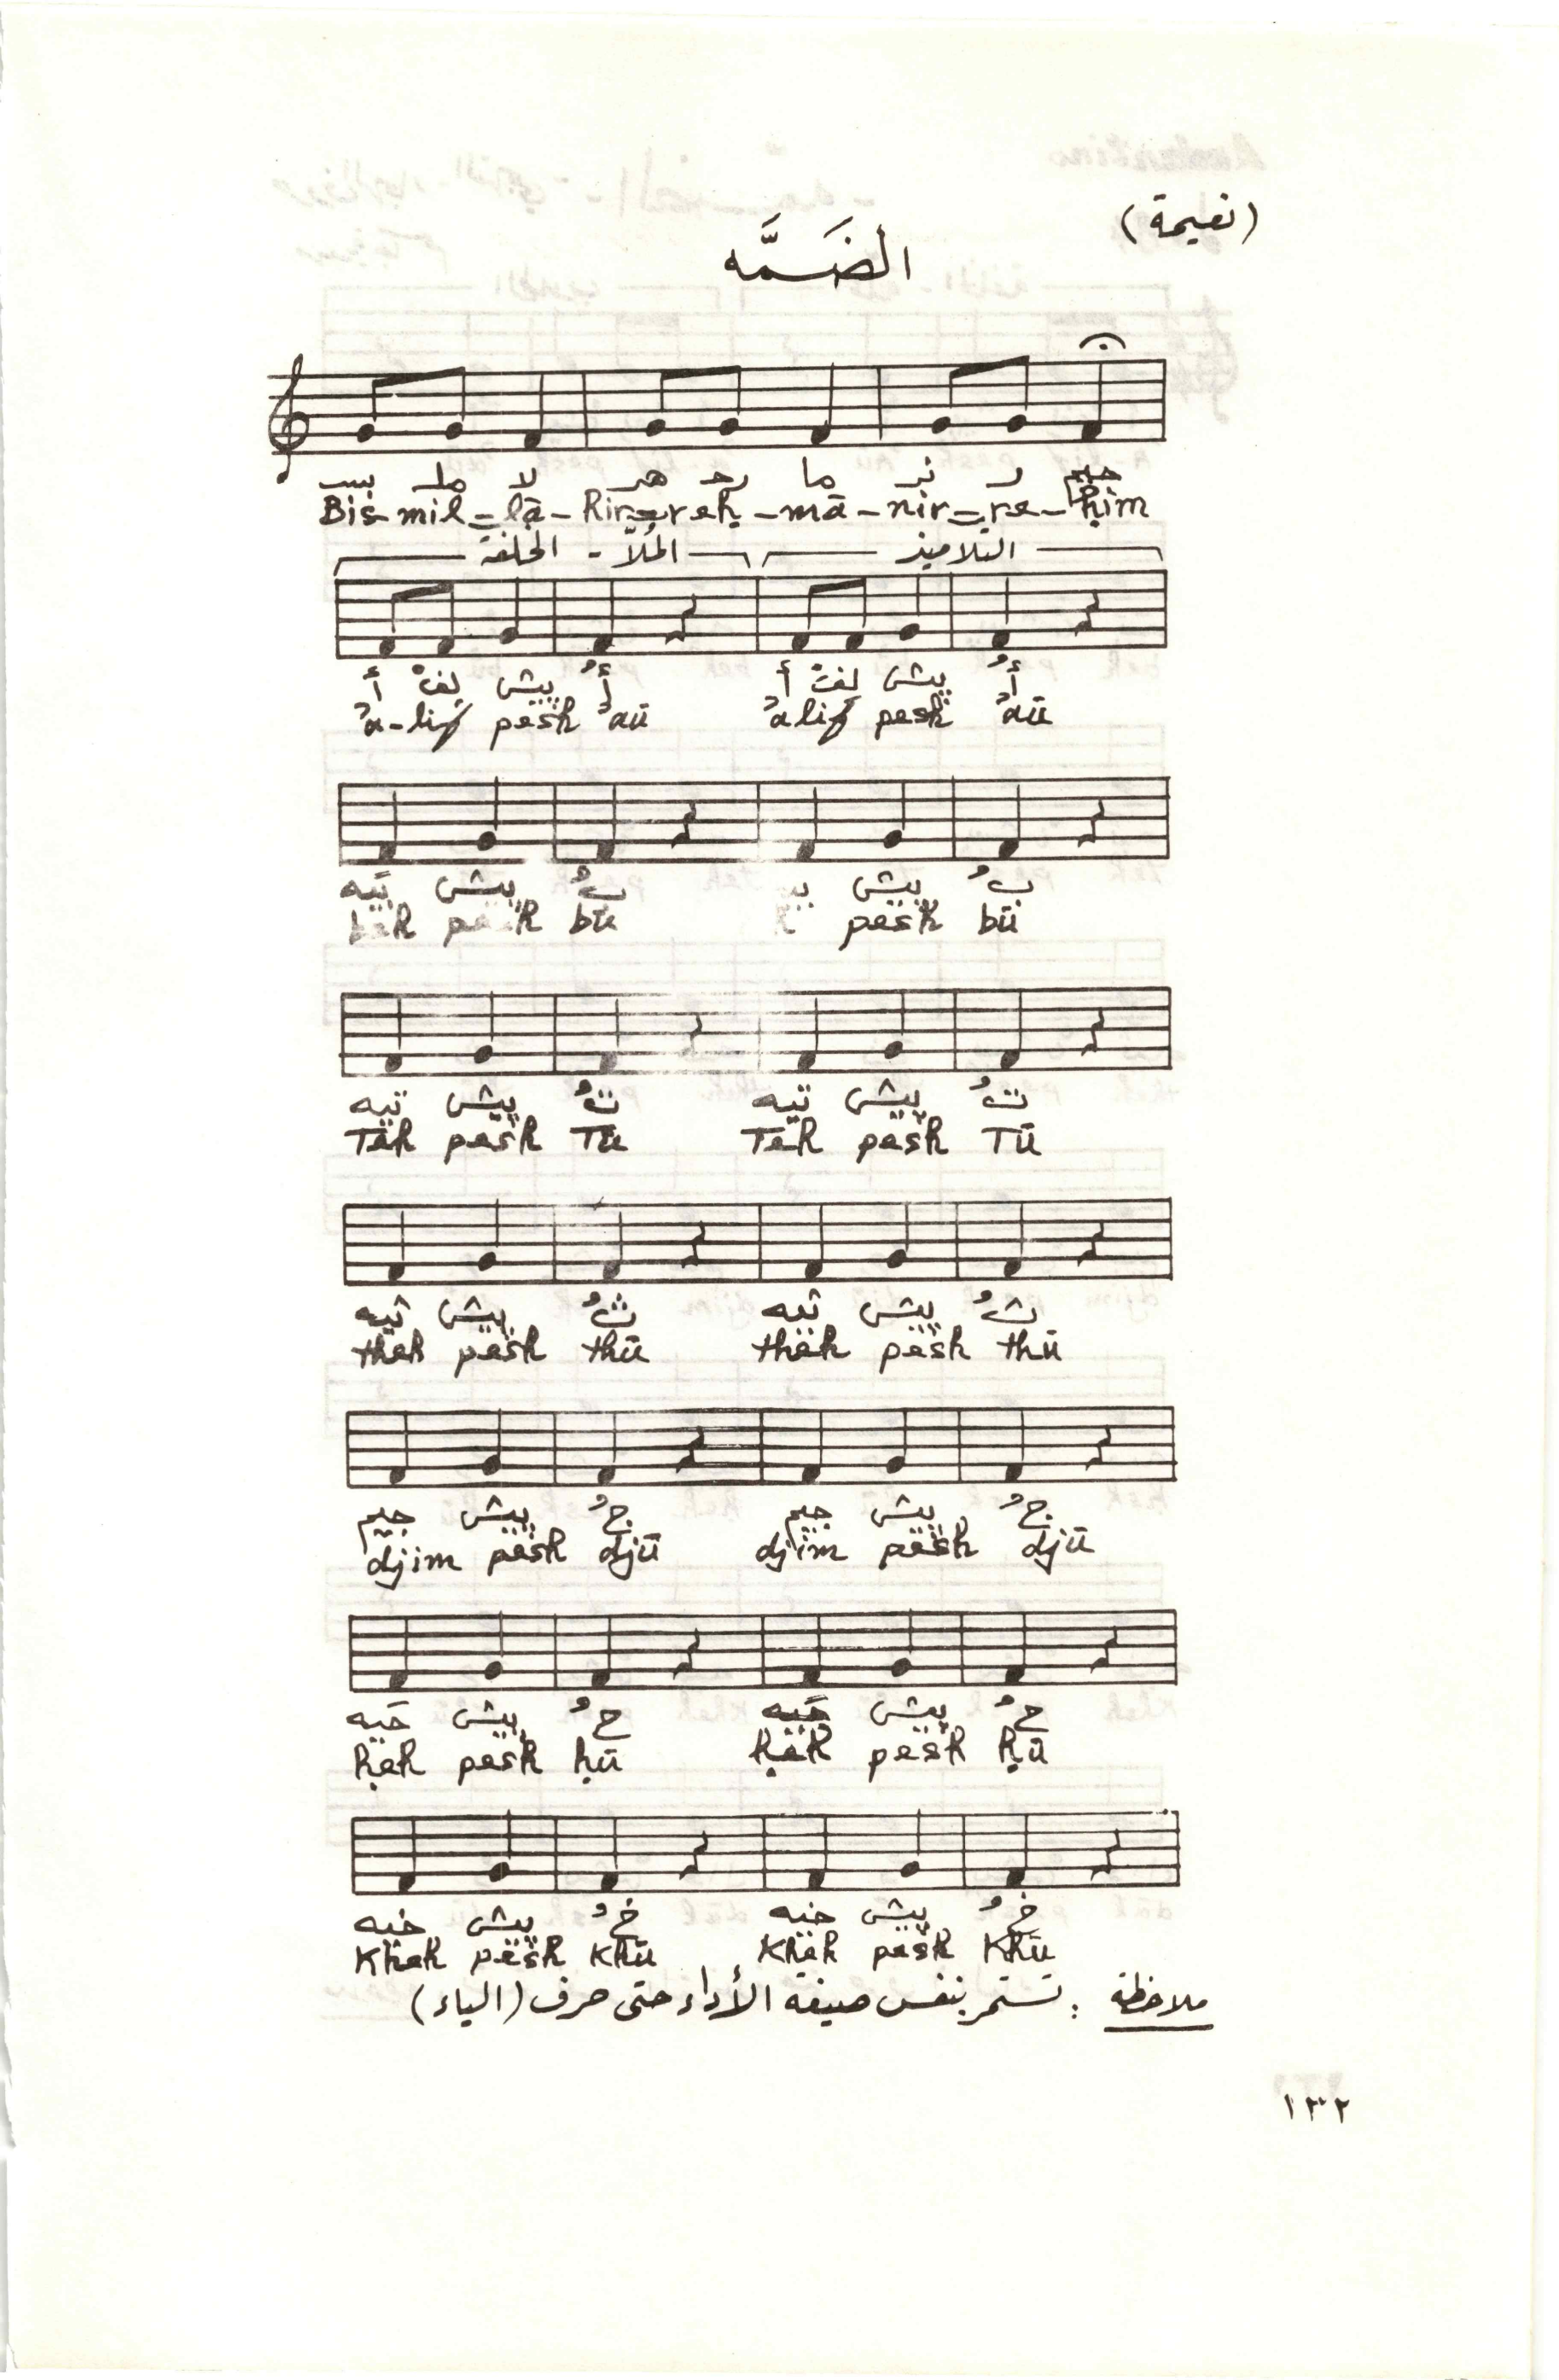 (نعيمة)
الضَمَّه
بسـ ملـ لا هر رحـ ما نر ر حيم
Bis-mil-lā-hir-reḥ-mā-nir-re-ḥim
الملّا - الخلفة التلاميذ
أ لِفْ پێش أُ أ لِفْ پێش أُ
'a-lif pesh 'aū 'alif pesh 'aū
بَيه پێش بُ پێش بُ
beh pesh bū pesh bū
تيه پێش تُ تيه پێش تُ
Teh pesh Tū Teh pesh Tū
ثيه پێش ثُ ثيه پێش ثُ
theh pesh thū theh pesh thū
جيم پێش جُ جيم پێش جُ
djim pesh djū djim pesh djū
حَيه پێش حُ حَيه پێش حُ
ḥeh pesh ḥū ḥeh pesh ḥū
خيه پێش خُ خيه پێش خُ
Kheh pesh Khū Kheh pesh Khū
ملاحظة : تستمر بنفس صيغة الأداء حتى حرف (الياء)
١٣٢